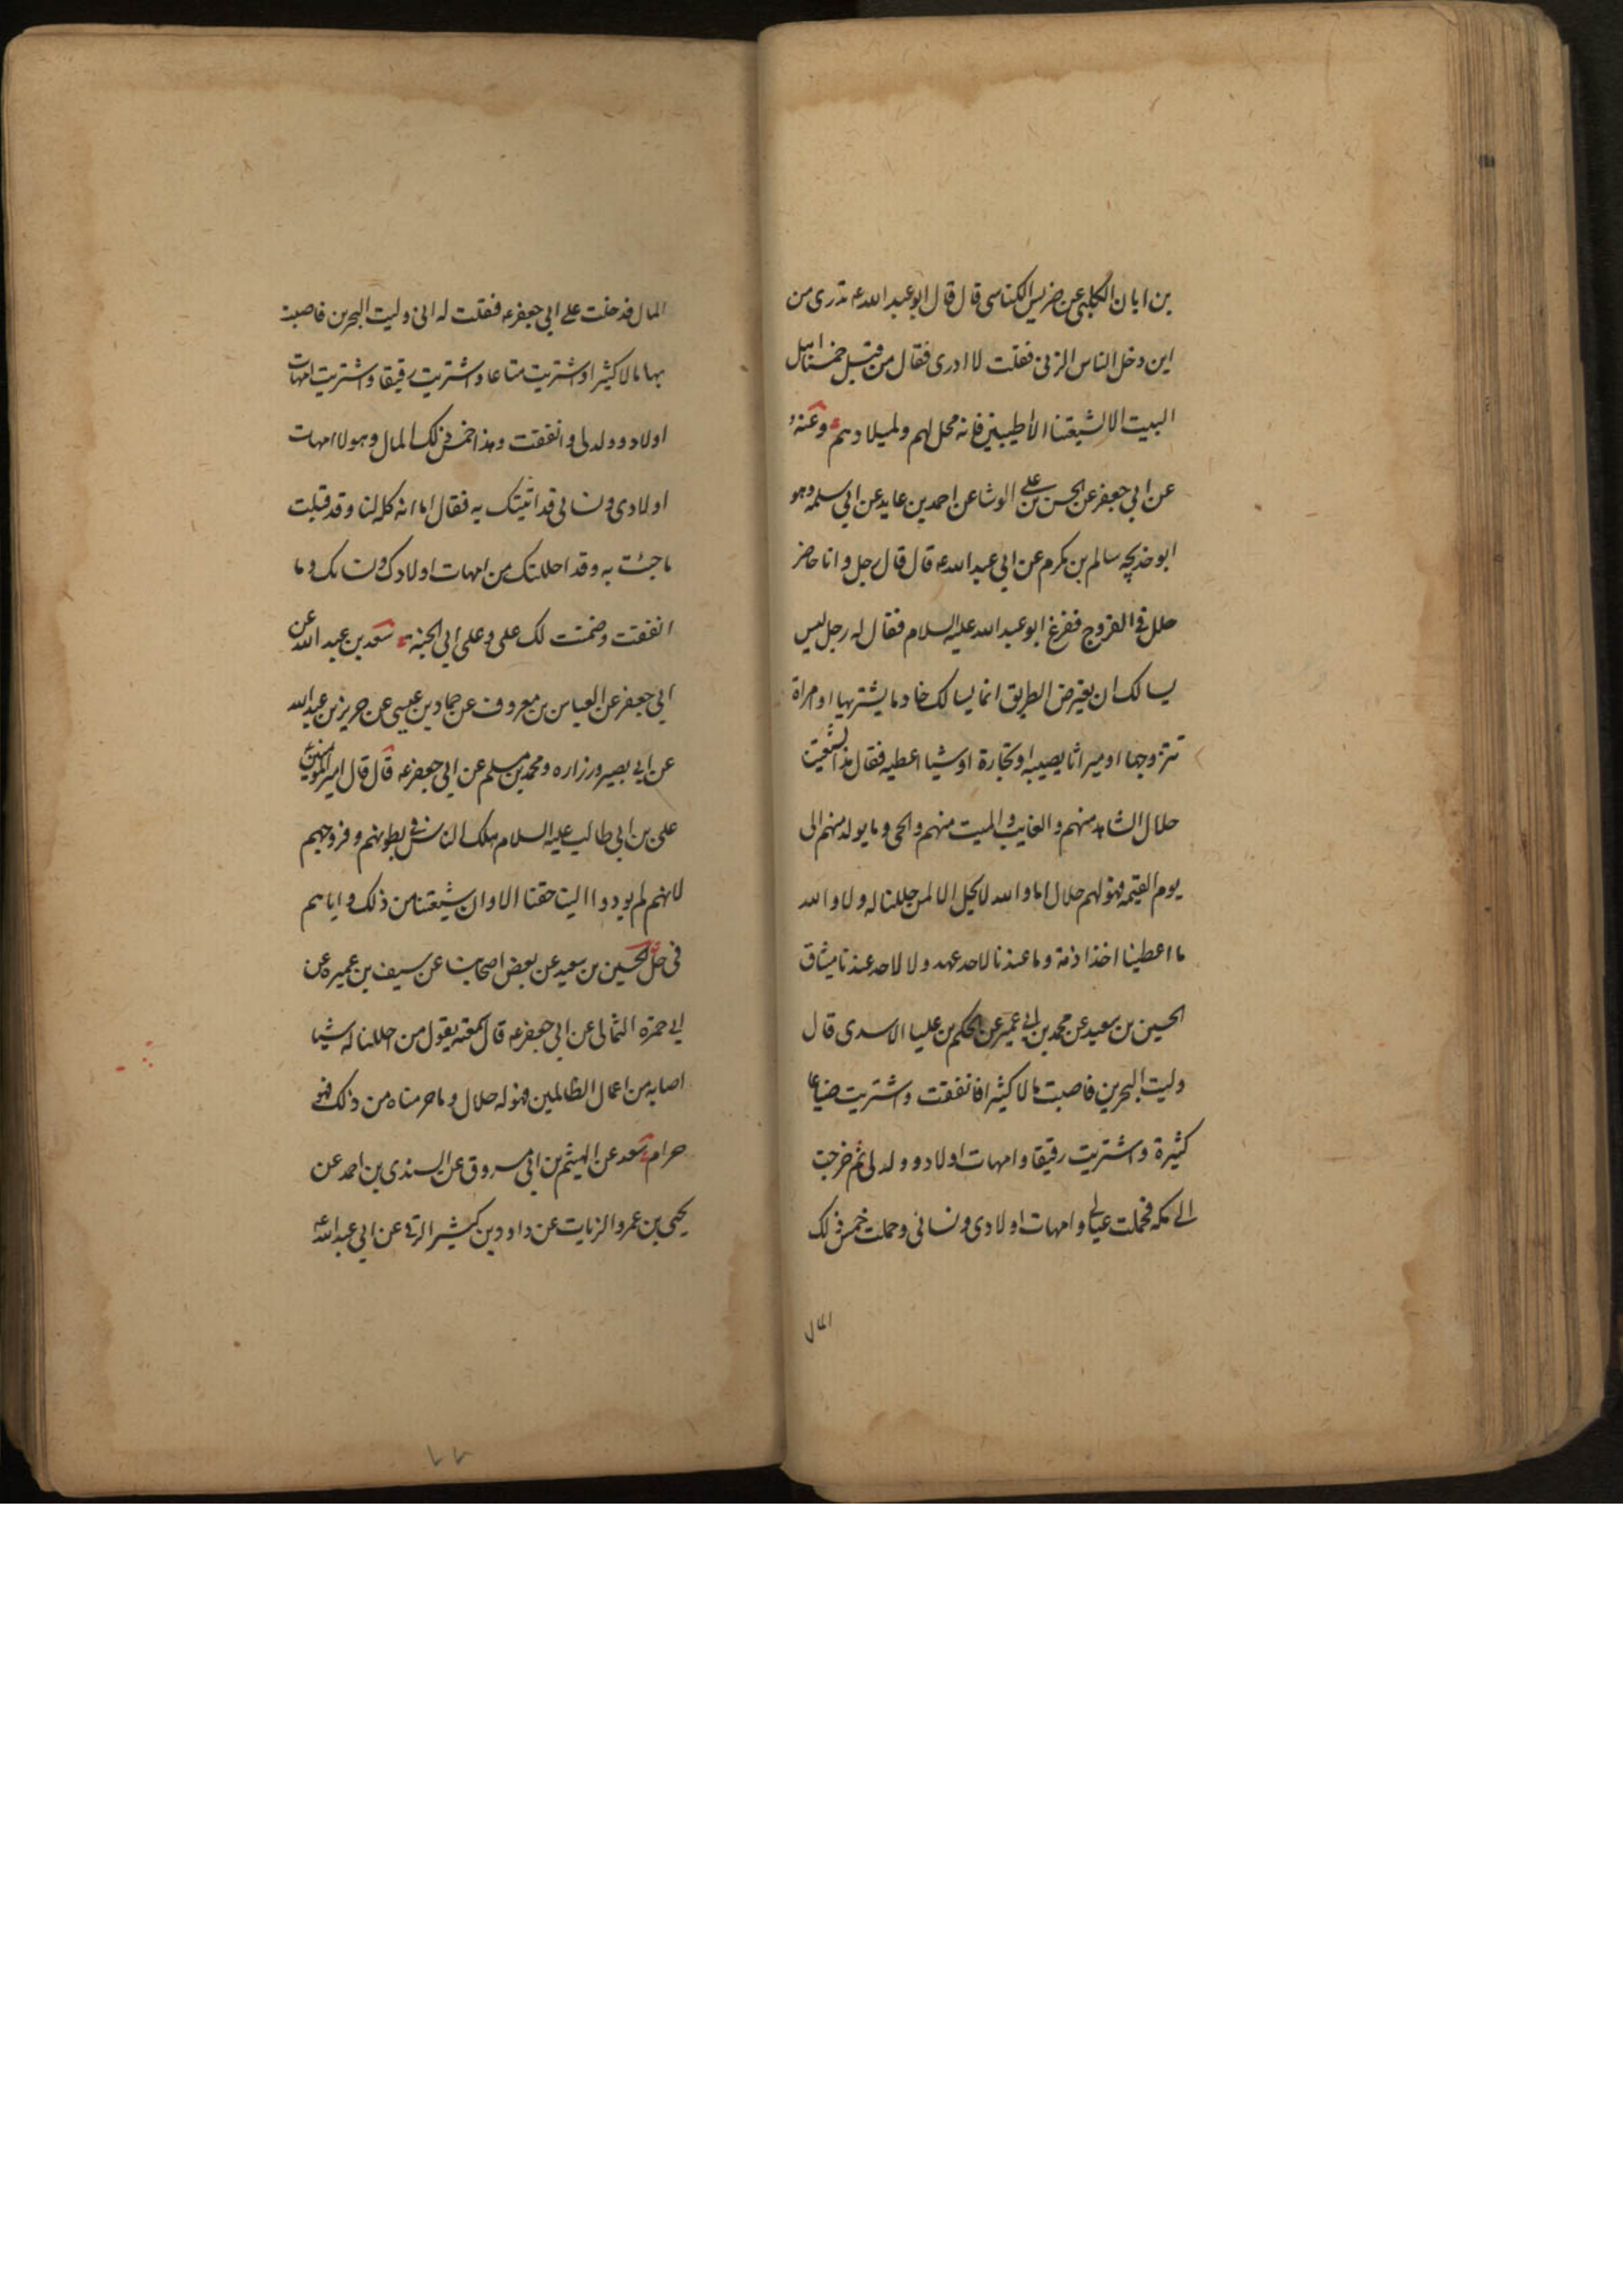 بن ابان الكلبي عن ضريس الكناسى قال قال ابو عبد الله ع تدرى من
اين دخل الناس الزنى فقلت لا ادرى فقال من قبل خمسنا اهل
البيت الا لشيعتنا الأطيبين فانه محل لهم ولميلادهم وعنه
عن ابي جعفر عن الحسن بن على الوشا عن احمد بن عايد عن ابي سلمه وهو
ابو خديجه سالم بن مكرم عن ابي عبد الله ع قال قال رجل و انا حاضر
حلل في الفروج ففزع ابو عبد الله عليه السلام فقال له رجل ليس
يسالك ان يعترض الطريق انما يسالك خادما يشتريها او امراة
تتزوجها او ميراثا يصيبه او تجارة او شيا اعطيه فقال هذا لشيعتنا
حلال الشاهد منهم و الغايب و الميت منهم و الحى و ما يولد منهم الى
يوم القيمه فهو لهم حلال اما و الله لا يحل الا لمن حللنا له و لا و الله
ما اعطينا احدا ذمة و ما عندنا لاحد عهد و لا لاحد عندنا ميثاق
الحسين بن سعيد عن محمد بن ابي عمير عن الحكم بن عليا الاسدى قال
وليت البحرين فاصبت مالا كثيرا فانفقت و اشتريت ضياعا
كثيرة و اشتريت رقيقا و امهات اولاد و ولد لى ثم خرجت
الى مكه فحملت عيالى و امهات اولادى و نسائى و حملت خمس ذلك
المال
المال فدخلت على ابي جعفر ع فقلت له انى وليت البحرين فاصبت
بها مالا كثيرا و اشتريت متاعا و اشتريت رقيقا و اشتريت امهات
اولاد و ولد لى و انفقت و هذا خمس ذلك المال و هولا امهات
اولادى و نسائى قد اتيتك به فقال اما انه كله لنا و قد قبلت
ما جئت به و قد احللتك من امهات اولادك و نسائك و ما
انفقت و ضمنت لك على و على ابي الجنة سعد بن عبد الله عن
ابي جعفر عن العباس بن معروف عن حماد بن عيسى عن حريز بن عبد الله
عن ابي بصير و زراره و محمد بن مسلم عن ابي جعفر ع قال قال امير المومنين
على بن ابي طالب عليه السلام هلك الناس فى بطونهم و فروجهم
لانهم لم يودوا الينا حقنا الا و ان شيعتنا من ذلك و اباهم
فى حل الحسين بن سعيد عن بعض اصحابنا عن سيف بن عميره عن
ابي حمزه الثمالى عن ابي جعفر ع قال سمعته يقول من احللنا له شيا
اصابه من اعمال الظالمين فهو له حلال و ما حرمناه من ذلك فهو
حرام سعد عن الهيثم بن ابي مسروق عن السندى بن احمد عن
يحيى بن عمرو الزيات عن داود بن كثير الرقى عن ابي عبد الله ع